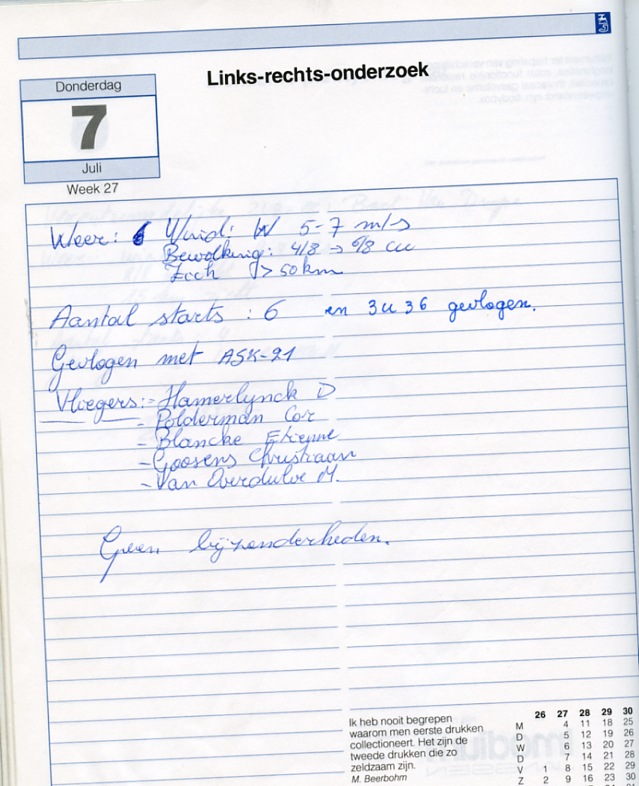 Links-rechts-onderzoek
Donderdag
7
Juli
Week 27
Weer: Wind: W 5-7 m/s
Bewolking: 4/8 → 6/8 cu
Zich > 50 km
Aantal starts : 6 en 3u36 gevlogen.
Gevlogen met ASK-21
Vliegers: - Hamerlynck D
- Polderman Cor
- Blancke Etienne
- Goosens Christiaan
- Van Overdulve M.
Geen bijzonderheden.
Ik heb nooit begrepen
waarom men eerste drukken
collectioneert. Het zijn de
tweede drukken die zo
zeldzaam zijn.
M. Beerbohm
26 27 28 29 30
M 4 11 18 25
D 5 12 19 26
W 6 13 20 27
D 7 14 21 28
V 1 8 15 22 29
Z 2 9 16 23 30